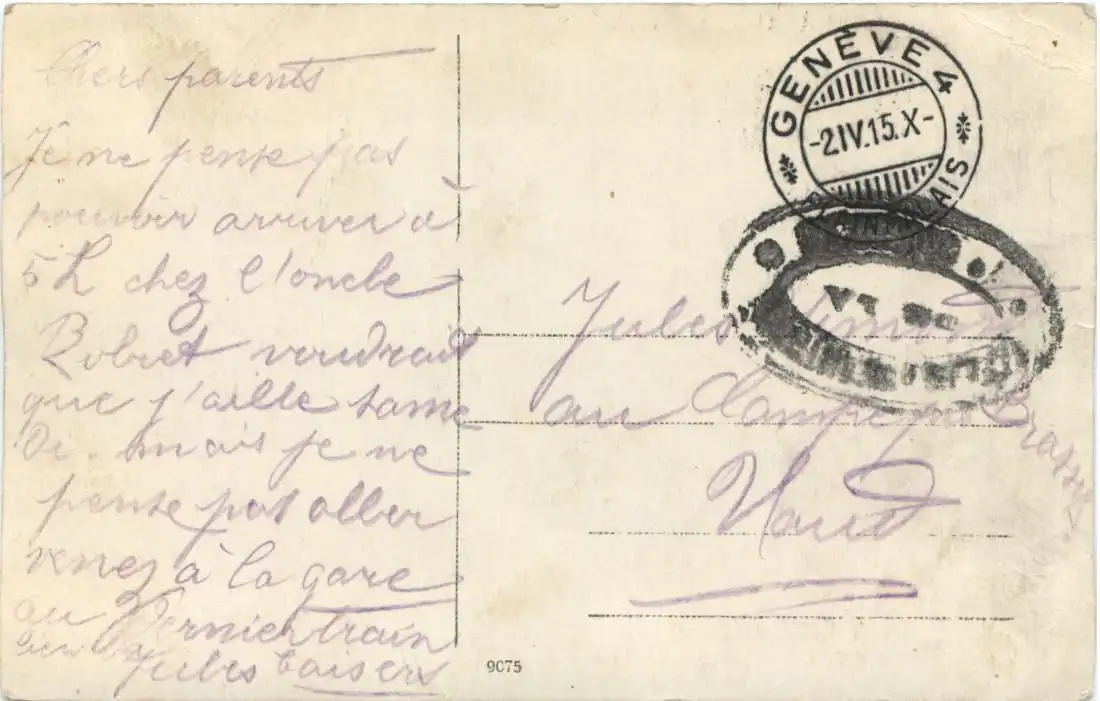 Chers parents
Je ne pense pas
pouvoir arriver à
5 h chez l'oncle
Robret voudrait
que j'aille same
di. mais je ne
pense pas aller
venez à la gare
au dernier train
Jules baisers
GENÈVE 4
-2.IV.15.X-
Jules
au Campe par
Vaud
9075